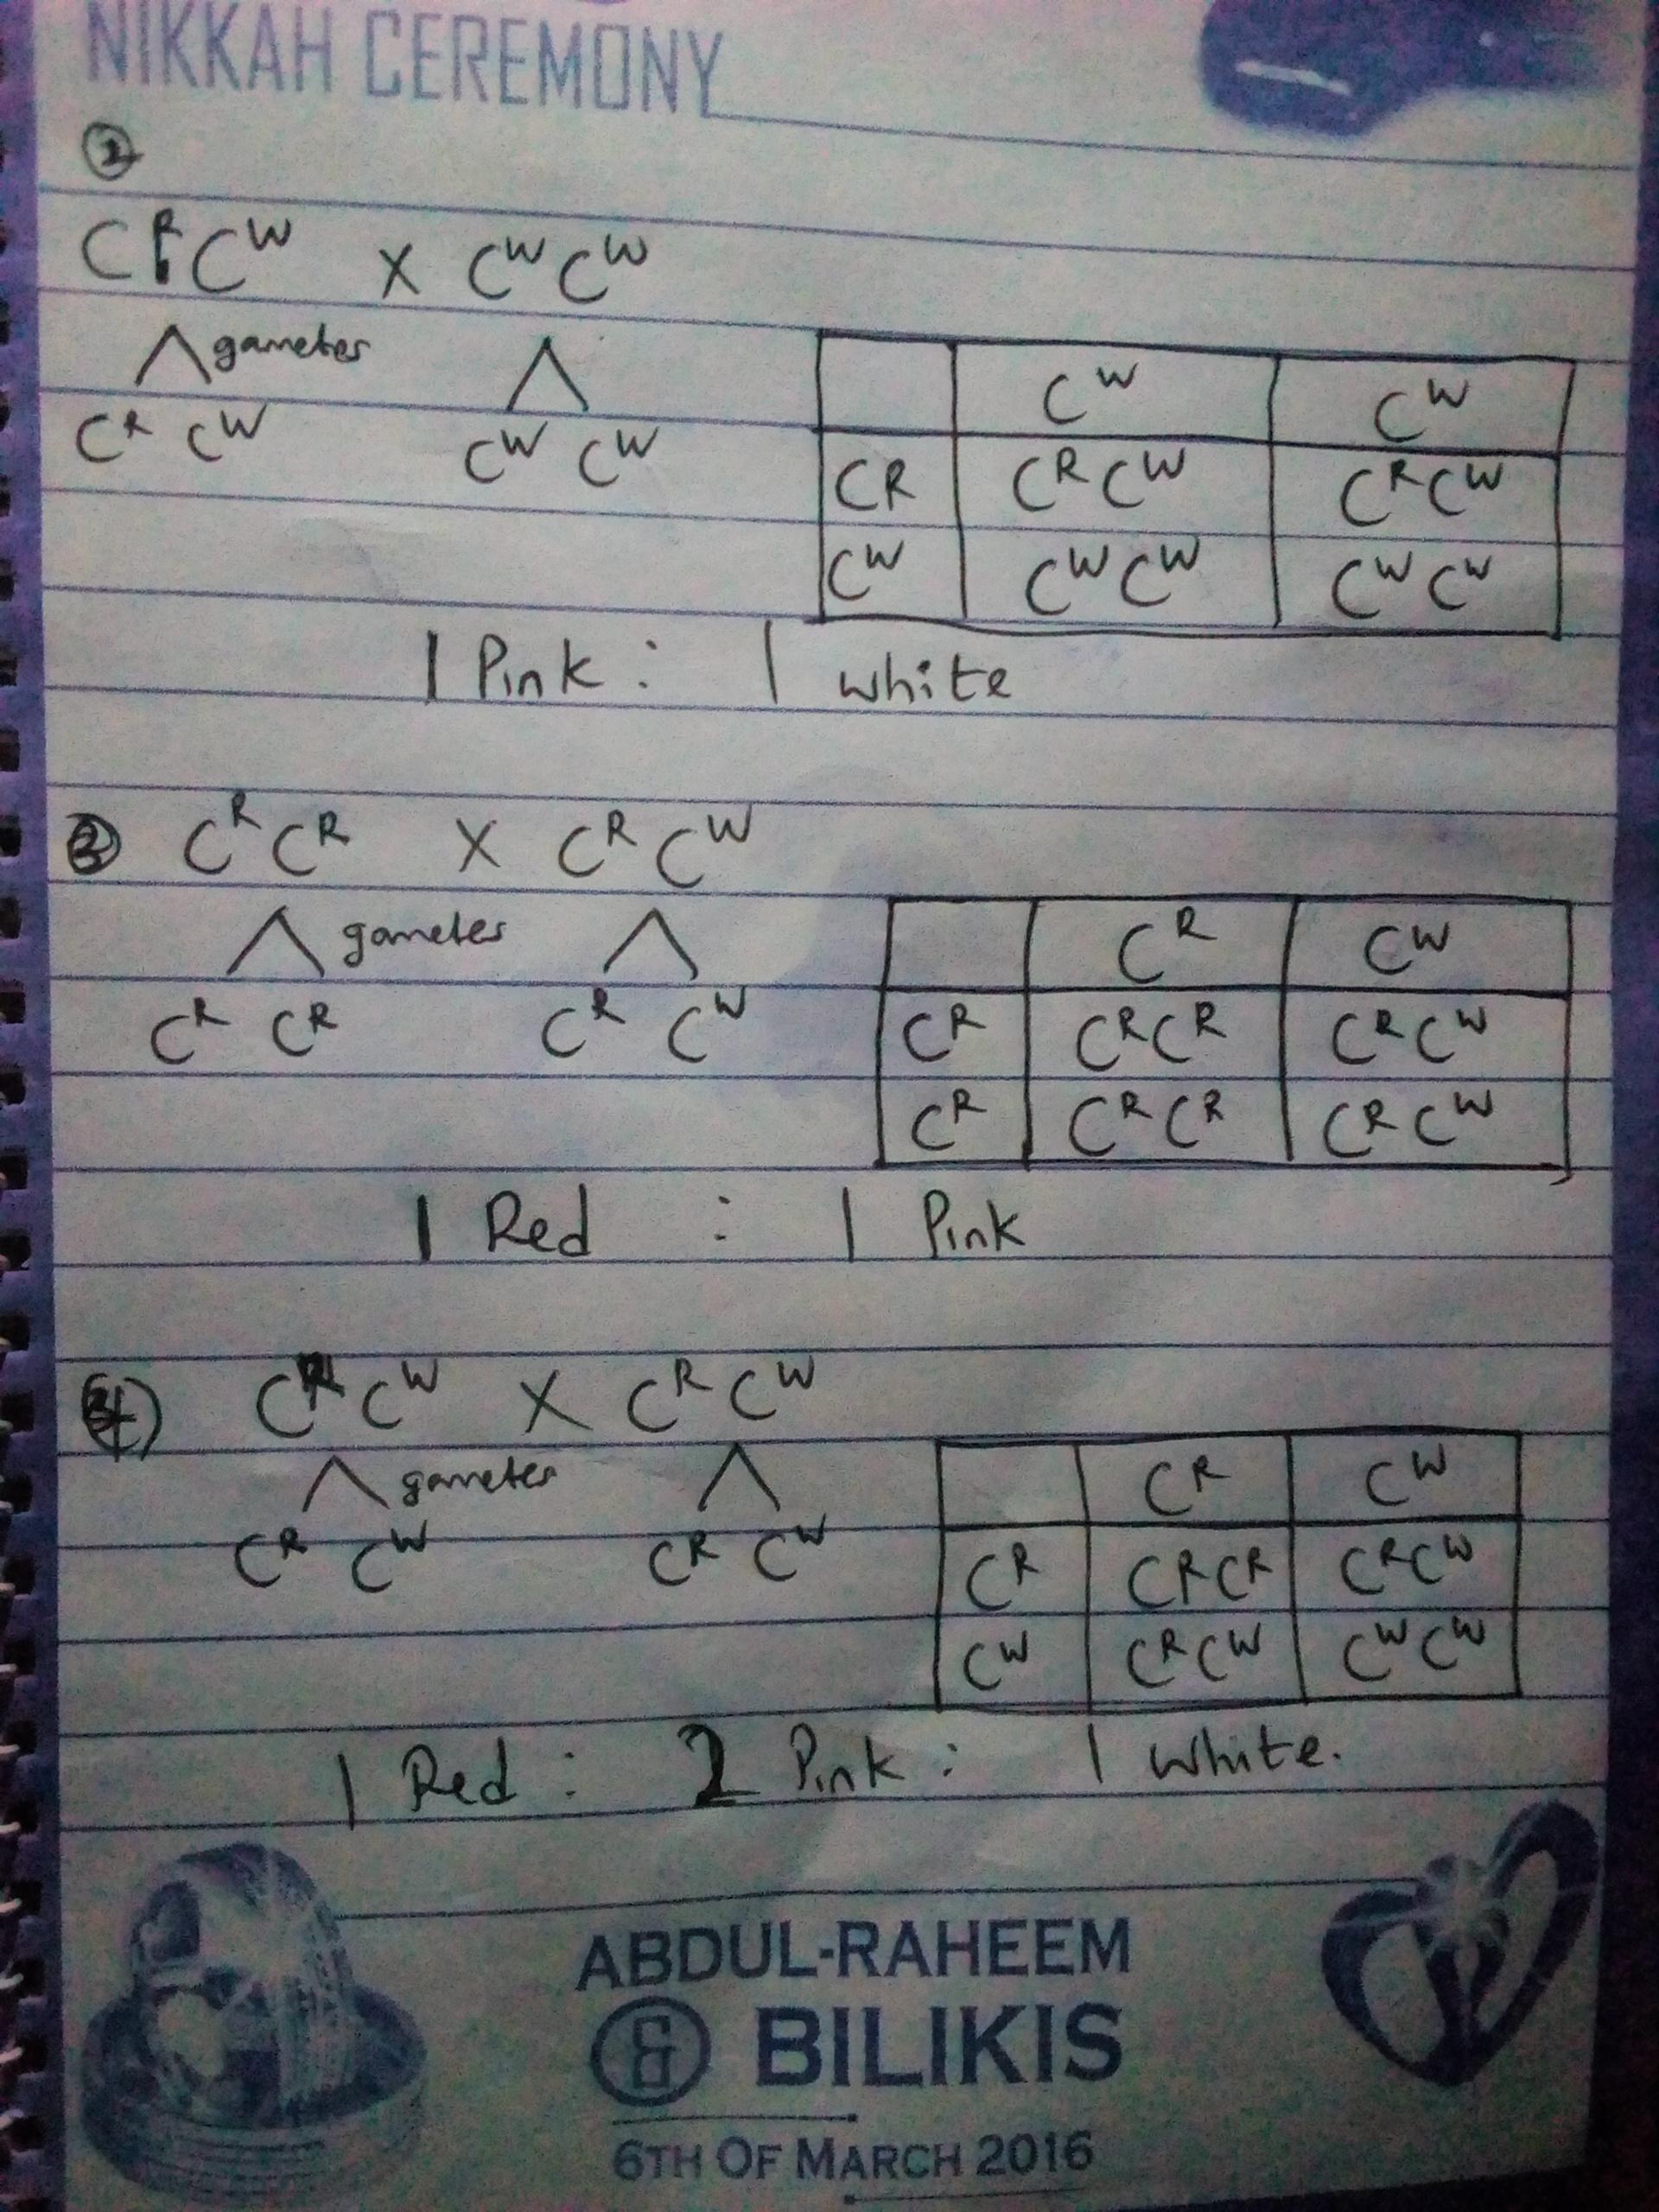 NIKKAH CEREMONY
②
CᴿCᵂ X CᵂCᵂ
gametes
Cᴿ Cᵂ Cᵂ Cᵂ
Cᵂ Cᵂ
CR CᴿCᵂ CᴿCᵂ
Cᵂ CᵂCᵂ CᵂCᵂ
1 Pink : 1 white
③ CᴿCᴿ X CᴿCᵂ
gametes
Cᴿ Cᴿ Cᴿ Cᵂ
Cᴿ Cᵂ
Cᴿ CᴿCᴿ CᴿCᵂ
Cᴿ CᴿCᴿ CᴿCᵂ
1 Red : 1 Pink
4) CᴿCᵂ X CᴿCᵂ
gametes
Cᴿ Cᵂ Cᴿ Cᵂ
Cᴿ Cᵂ
Cᴿ CᴿCᴿ CᴿCᵂ
Cᵂ CᴿCᵂ CᵂCᵂ
1 Red : 2 Pink : 1 white.
ABDUL-RAHEEM
& BILIKIS
6TH OF MARCH 2016